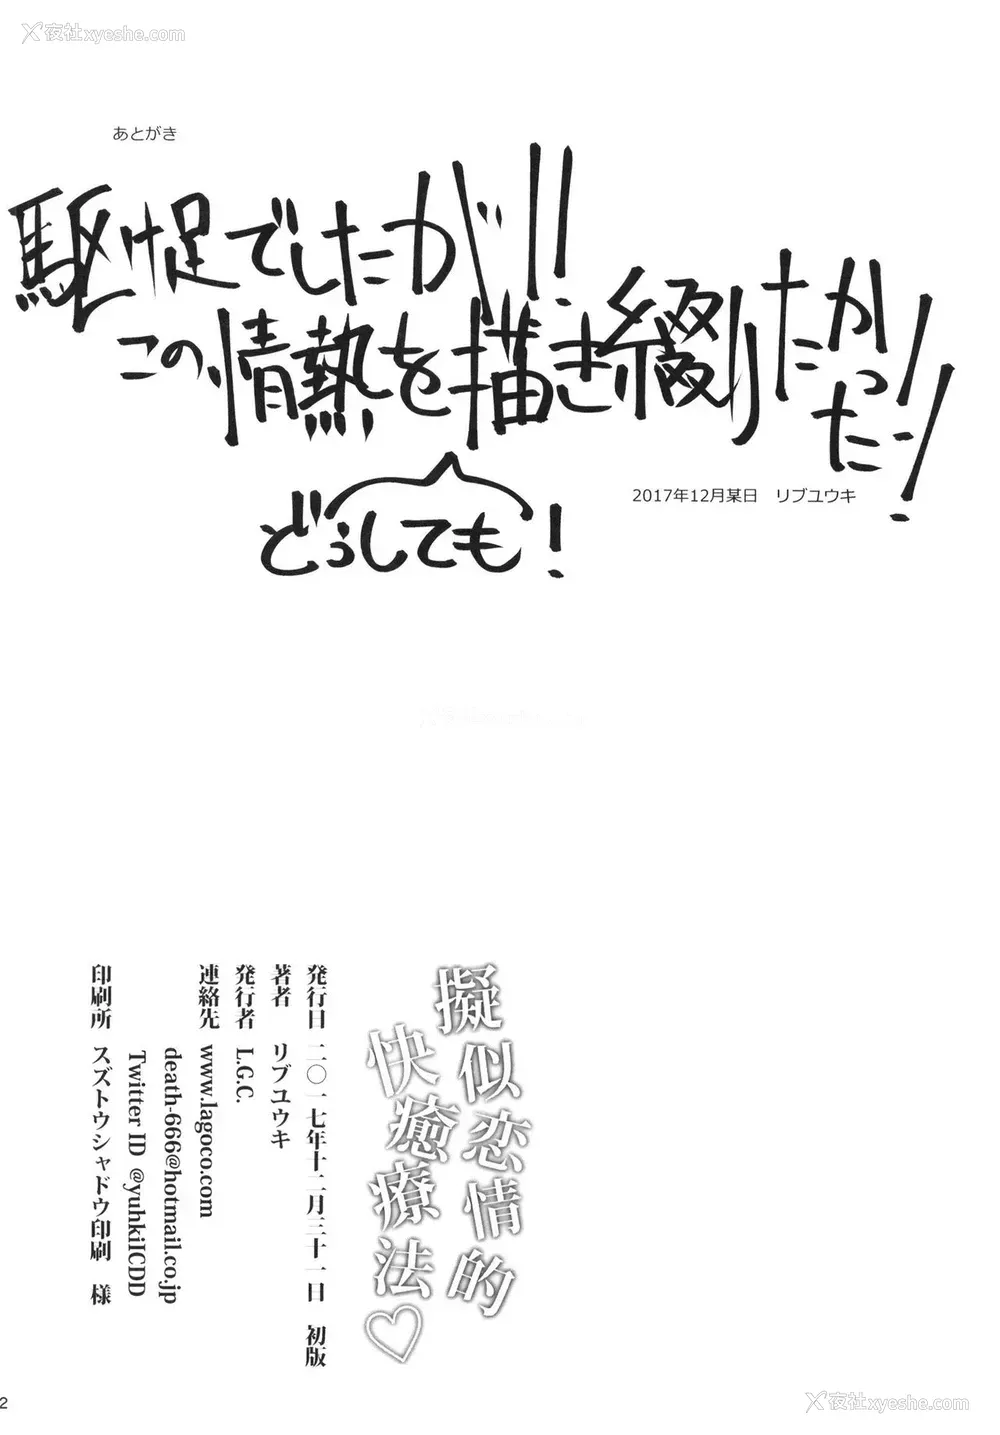 夜社xyeshe.com
あとがき
駆け足でしたが!!
この情熱を描き綴りたかった!!
どうしても!
2017年12月某日　リブユウキ
擬似恋情的
快癒療法♡
発行日 二〇一七年十二月三十一日 初版
著者 リブユウキ
発行者 L.G.C.
連絡先 www.lagoco.com
death-666@hotmail.co.jp
Twitter ID @yuhkiICDD
印刷所 スズトウシャドウ印刷 様
2
夜社xyeshe.com